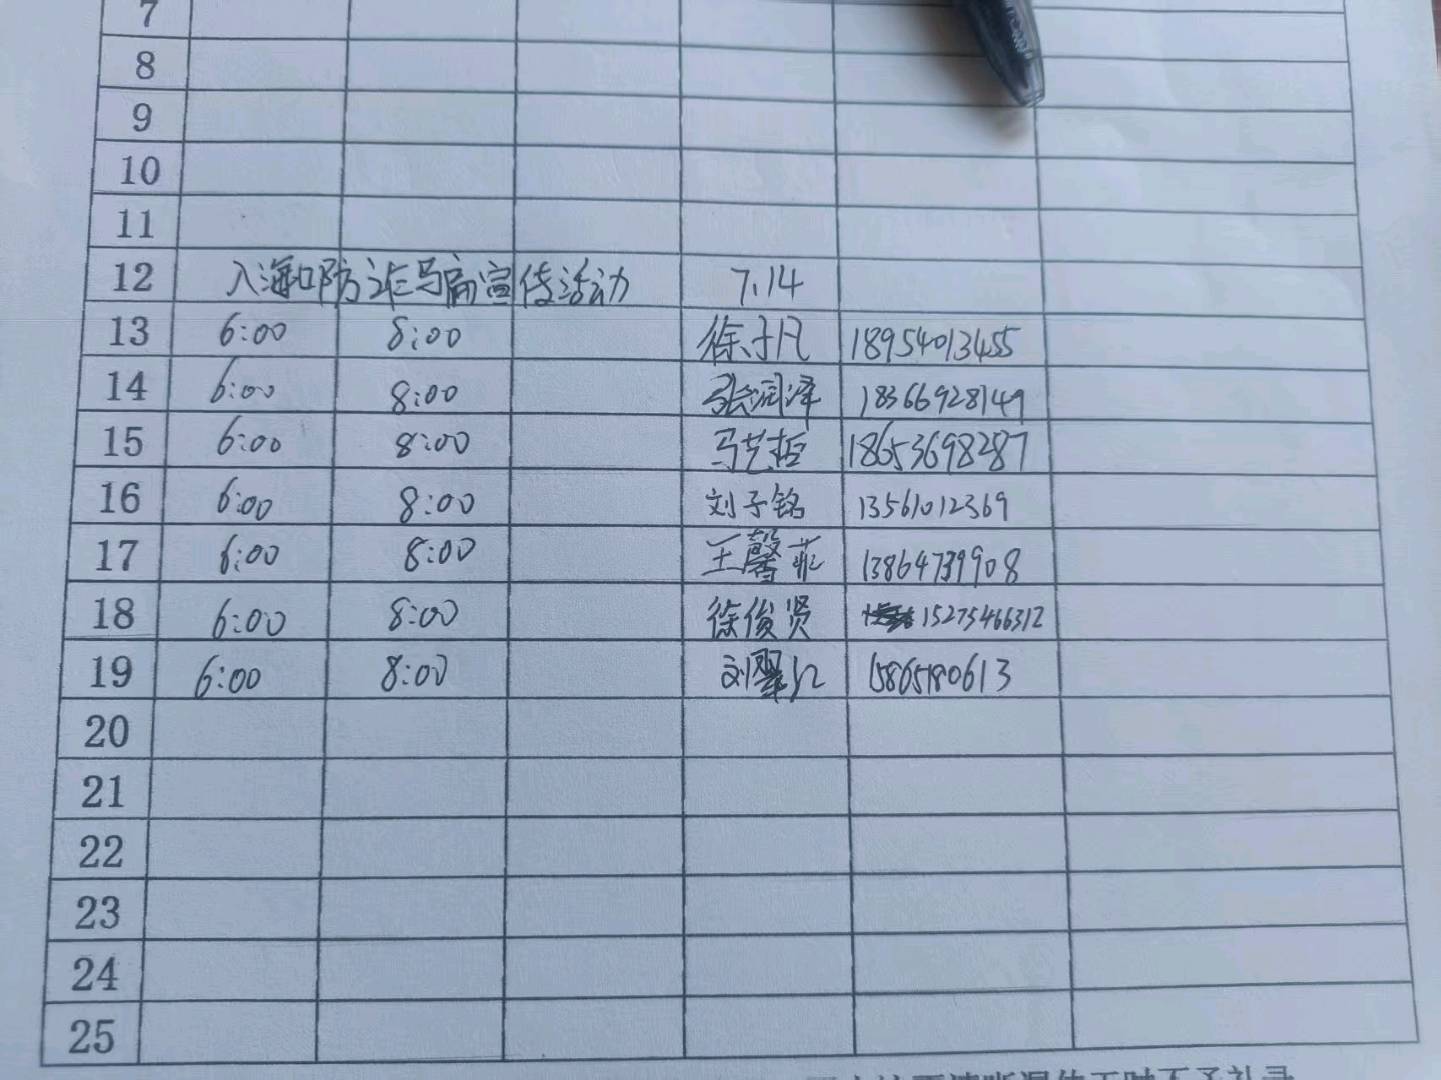 7
8
9
10
11
12 入海口防诈骗宣传活动 7.14
13 6:00 8:00 徐子凡 18954013455
14 6:00 8:00 张润泽 18366928149
15 6:00 8:00 马艺哲 18653698287
16 6:00 8:00 刘子铭 13561012369
17 6:00 8:00 王馨菲 13864739908
18 6:00 8:00 徐俊贤 15275466312
19 6:00 8:00 刘
20
21
22
23
24
25